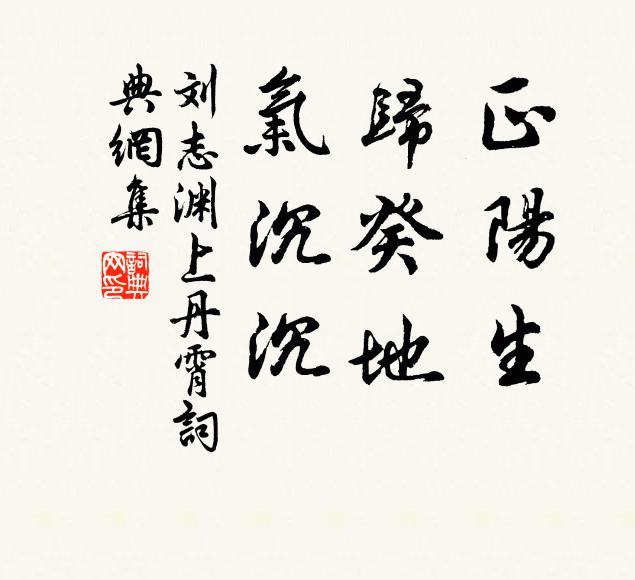 正陽生
歸癸地
氣沉沉
刘志渊上丹霄詞
典網集
詞典
网印